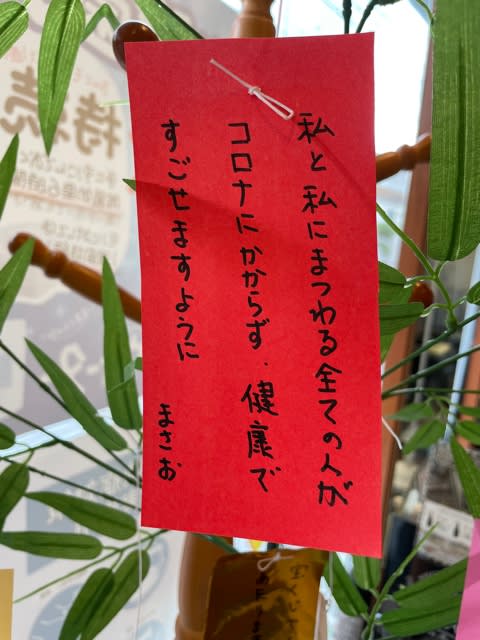 私と私にまつわる全ての人が
コロナにかからず、健康で
すごせますように
まさお
持続